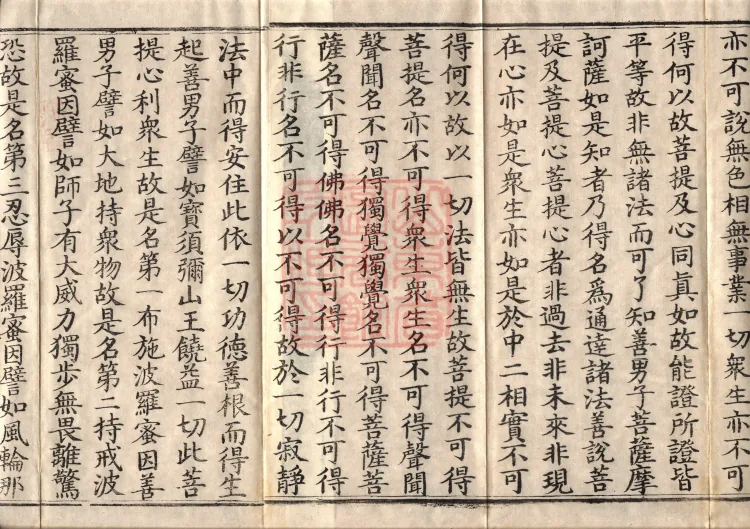 亦不可說無色相無事業一切衆生亦不可
得何以故菩提及心同眞如故能證所證皆
平等故非無諸法而可了知善男子菩薩摩
訶薩如是知者乃得名爲通達諸法善說菩
提及菩提心菩提心者非過去非未來非現
在心亦如是衆生亦如是於中二相實不可
得何以故以一切法皆無生故菩提不可得
菩提名亦不可得衆生衆生名不可得聲聞
聲聞名不可得獨覺獨覺名不可得菩薩菩
薩名不可得佛佛名不可得行非行不可得
行非行名不可得以不可得故於一切寂靜
法中而得安住此依一切功德善根而得生
起善男子譬如寶須彌山王饒益一切此菩
提心利衆生故是名第一布施波羅蜜因善
男子譬如大地持衆物故是名第二持戒波
羅蜜因譬如師子有大威力獨步無畏離驚
恐故是名第三忍辱波羅蜜因譬如風輪那